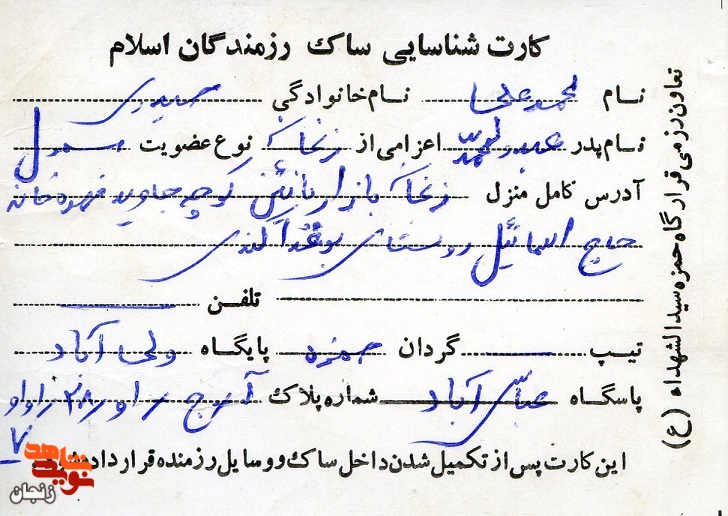 کارت شناسایی ساک رزمندگان اسلام
نام محمد علی نام خانوادگی صیدی
نام پدر عبدالمحمد اعزامی از زنجان نوع عضویت
آدرس کامل منزل زنجان بازار پائین کوچه جاوید قهوه خانه
حاج اسماعیل روستای بوغدا کندی
تلفن
تیپ گردان حمزه پایگاه ولی آباد
پاسگاه عباس آباد شماره پلاک
۷
این کارت پس از تکمیل شدن داخل ساک و وسایل رزمنده قرار داده شود
تعاون رزمی قرارگاه حمزه سیدالشهداء (ع)
نوید شاهد
زنجان